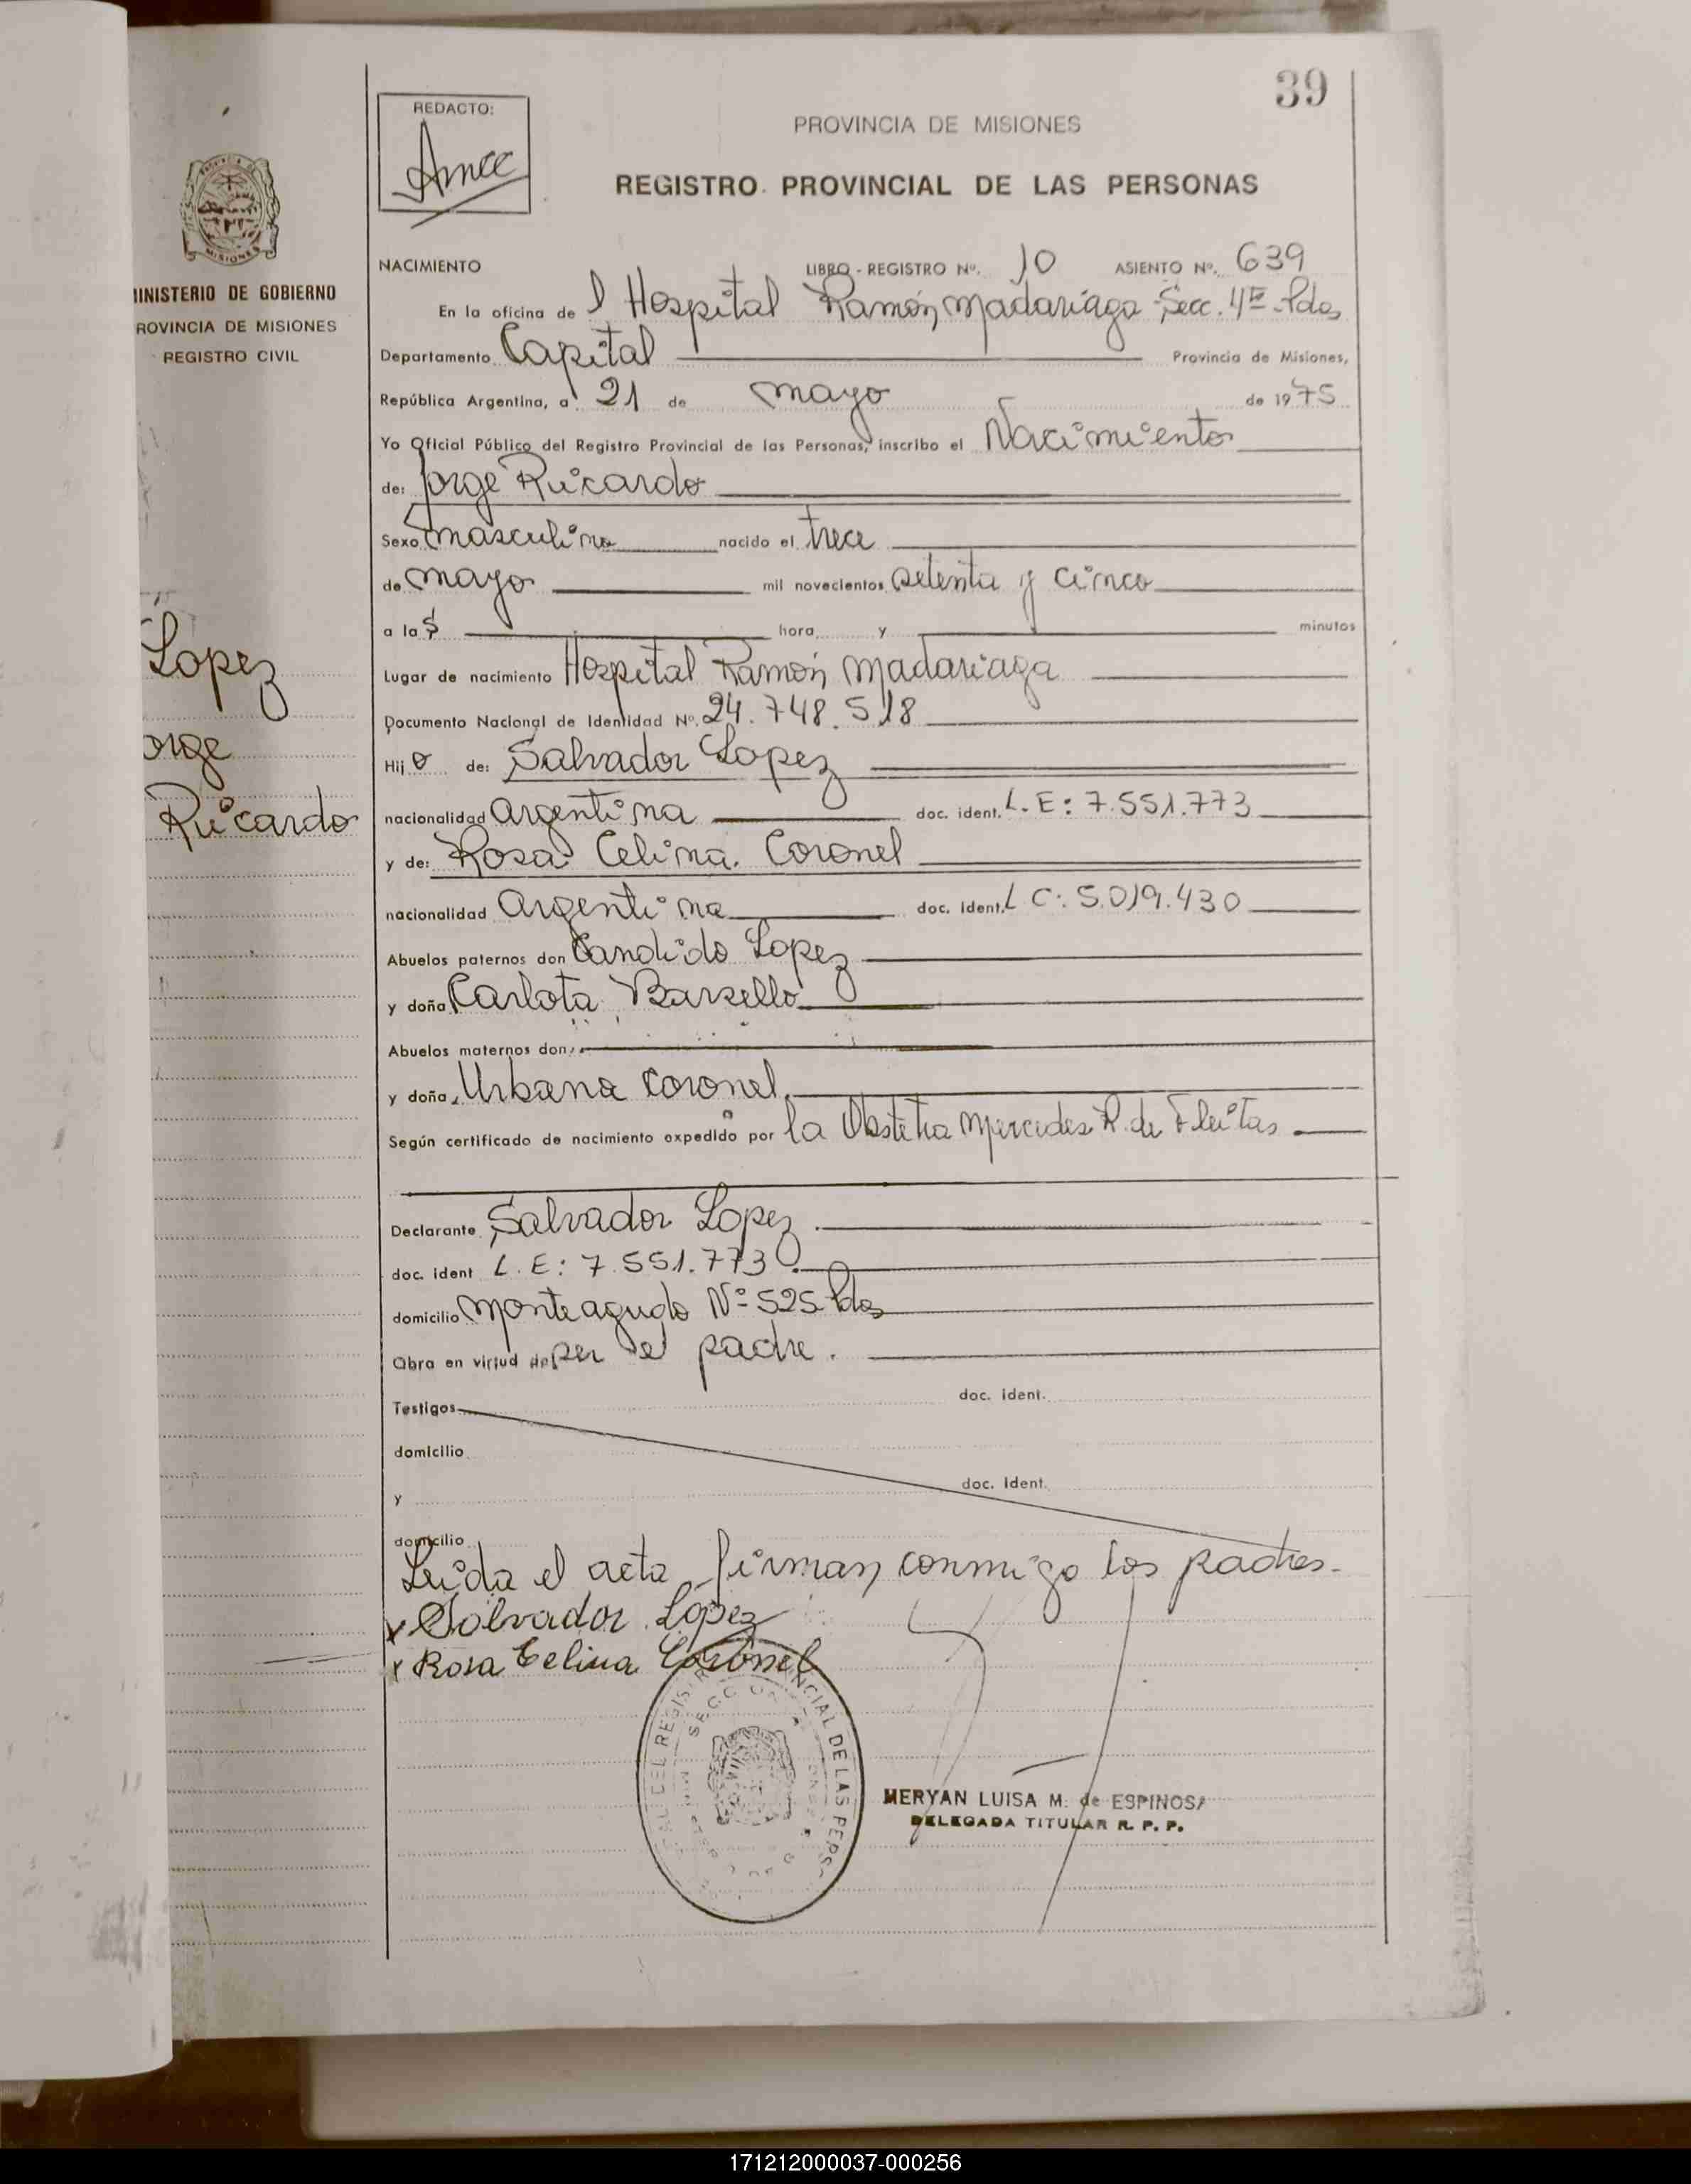 39
REDACTO:
PROVINCIA DE MISIONES
REGISTRO PROVINCIAL DE LAS PERSONAS
MISIONES
INISTERIO DE GOBIERNO
ROVINCIA DE MISIONES
REGISTRO CIVIL
Lopez
orge
Ricardo
NACIMIENTO LIBRO - REGISTRO Nº. 10 ASIENTO Nº. 639
En la oficina de l Hospital Ramón Madariaga Secc. 4ta Pdas
Departamento Capital Provincia de Misiones,
República Argentina, a 21 de mayo de 1975
Yo Oficial Público del Registro Provincial de las Personas, inscribo el Nacimiento
de: Jorge Ricardo
Sexo masculino nacido el trece
de mayo mil novecientos setenta y cinco
a las hora y minutos
Lugar de nacimiento Hospital Ramón Madariaga
Documento Nacional de Identidad Nº. 24.748.518
Hijo de: Salvador Lopez
nacionalidad argentina doc. ident. L.E: 7.551.773
y de: Rosa Celina Coronel
nacionalidad Argentina doc. ident. L C: 5.019.430
Abuelos paternos don Candido Lopez
y doña Carlota Barsello
Abuelos maternos don
y doña Urbana Coronel
Según certificado de nacimiento expedido por la Obstetra Mercedes R. de Fleitas
Declarante Salvador Lopez
doc. ident L.E: 7.551.773
domicilio Monteagudo Nº 525 Pdas
Obra en virtud de ser el padre.
Testigos doc. ident.
domicilio
y doc. ident.
domicilio
Leida el acta firman conmigo los padres.
x Salvador Lopez
x Rosa Celina Coronel
MERYAN LUISA M. de ESPINOSA
DELEGADA TITULAR R. P. P.
171212000037-000256